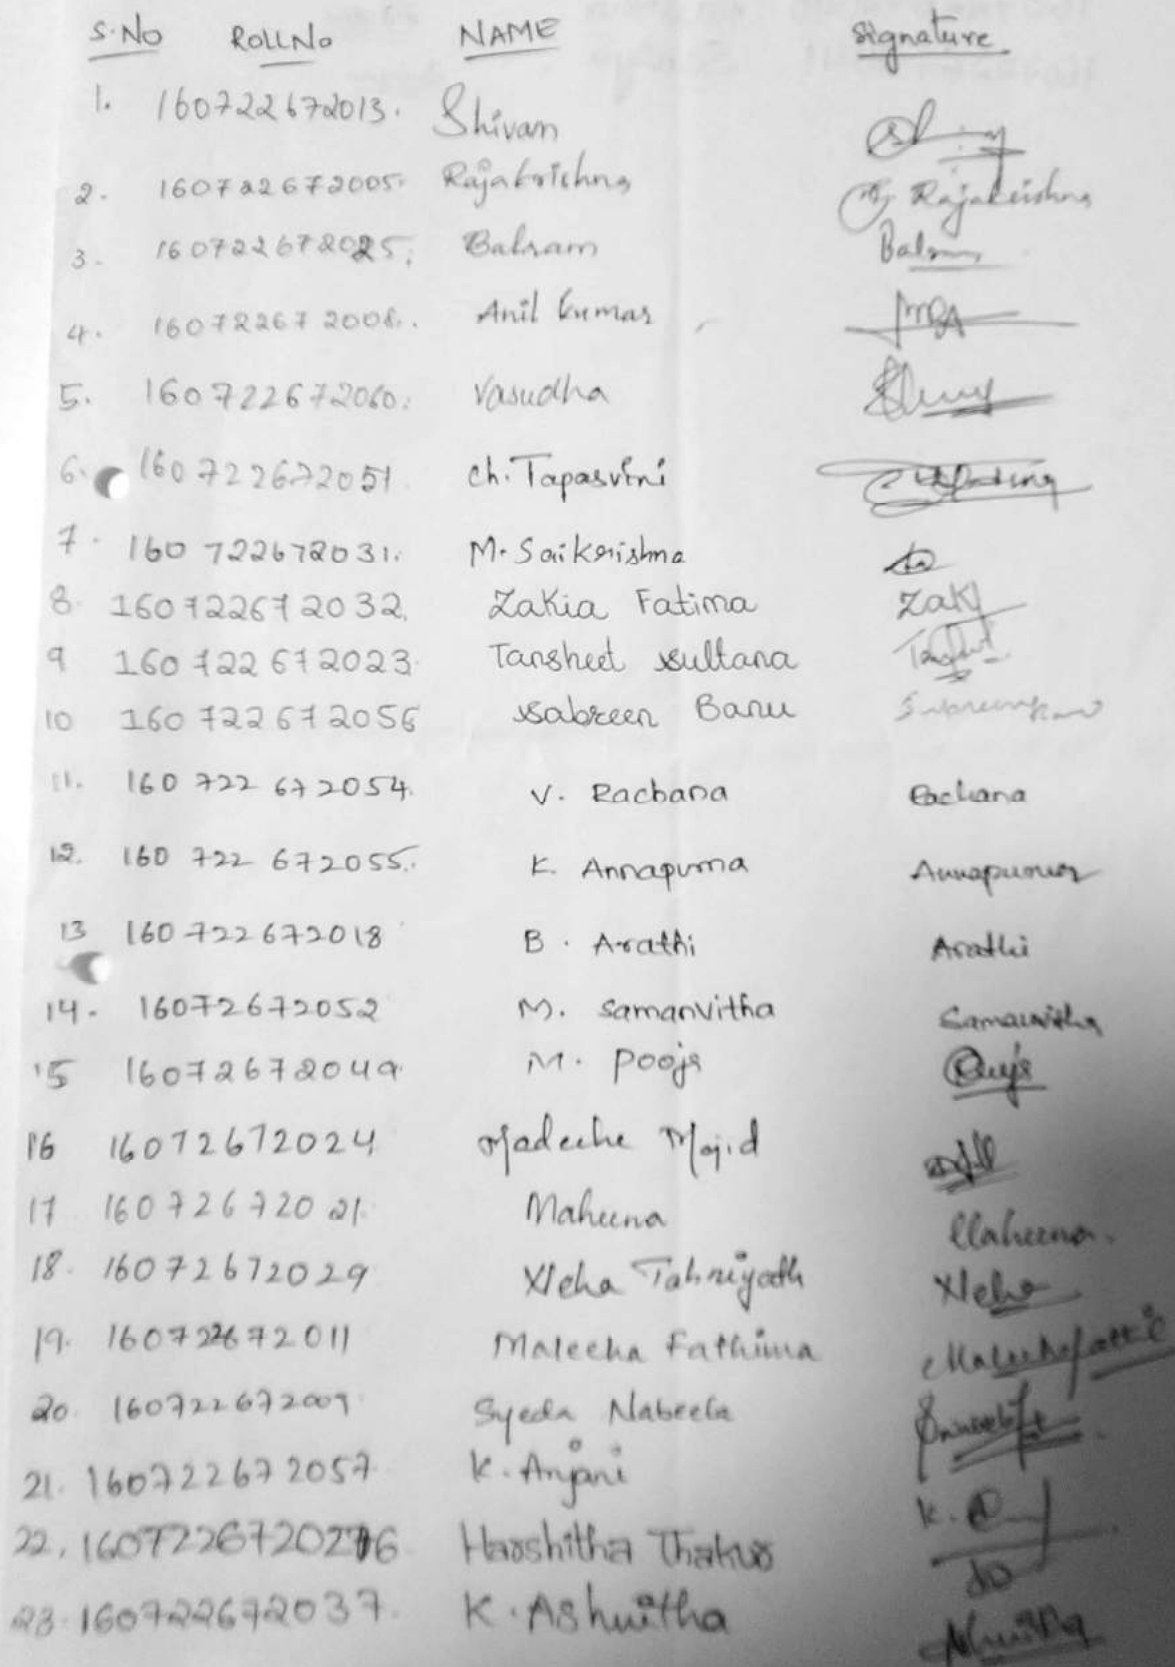 S.No ROLLNo NAME Signature
1. 160722672013. Shivam
2. 160722672005. Rajakrishna Rajakrishna
3. 160722672025. Balram Balram
4. 160722672008.. Anil Kumar
5. 160722672060. Vasudha
6. 160722672051 Ch. Tapasvini
7. 160722672031. M. Saikrishna
8. 160722672032. Zakia Fatima Zaky
9 160722672023 Tansheet Sultana
10 160722672056 Sabreen Banu
11. 160722672054. V. Rachana Rachana
12. 160722672055.. K. Annapurna Annapurna
13 160722672018 B. Arathi Arathi
14. 16072672052 M. Samanvitha Samanvitha
15 16072672049 M. Pooja
16 16072672024 Majid
17 16072672021. Maheena Maheena.
18. 16072672029 Neha Tahniyath Neha
19. 160722672011 Maleeha Fathima
20. 160722672009 Syeda Nabeela
21. 160722672057 K. Anjani
22. Harshitha Thakur
23. 160722672037. K. Ashwitha